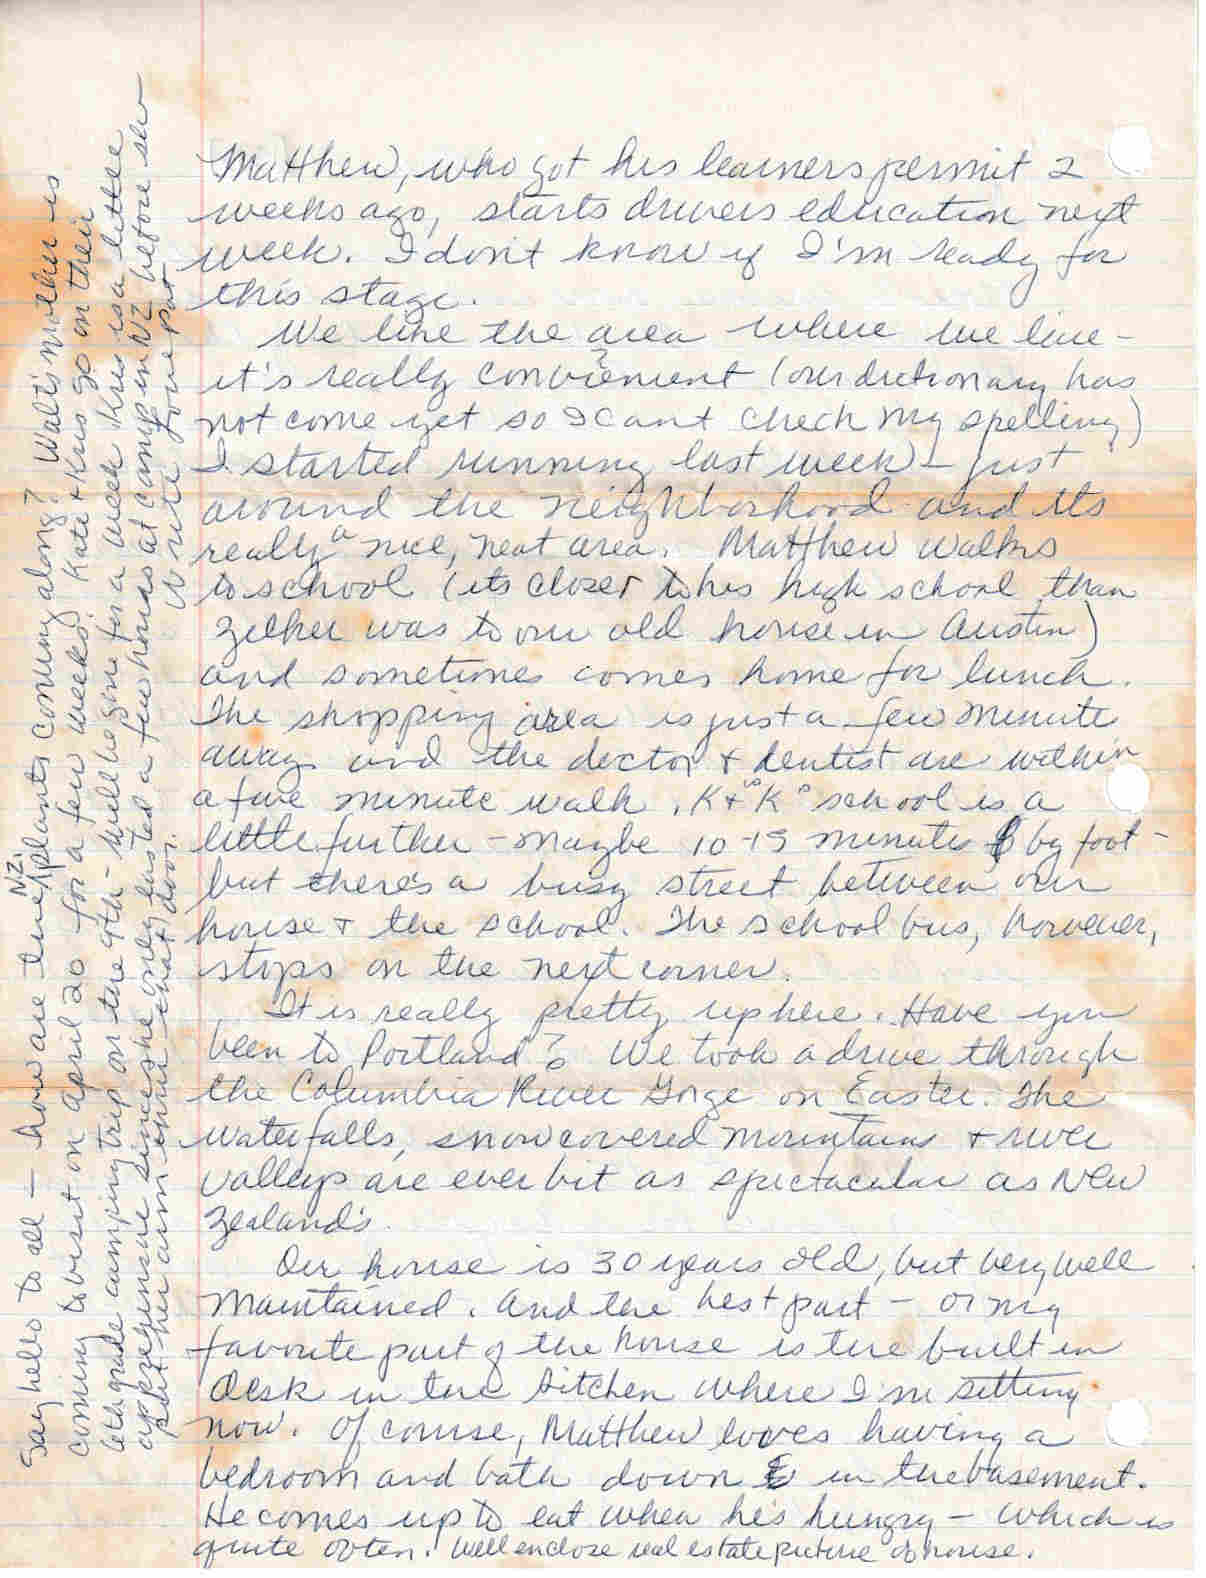 Matthew, who got his learners permit 2
weeks ago, starts drivers education next
week. I don't know if I'm ready for
this stage.
We like the area where we live -
it's really convienient (our dictionary has
?
not come yet so I cant check my spelling)
I started running last week - just
around the neighborhood and its
really a nice, neat area. Matthew walks
to school (its closer to his high school than
Zilker was to our old house in Austin)
and sometimes comes home for lunch.
The shopping area is just a few minute
away and the doctor + dentist are within
a five minute walk. K + "K"s school is a
little further - maybe 10-15 minutes by foot -
but there's a busy street between our
house + the school. The school bus, however,
stops on the next corner.
It is really pretty up here. Have you
been to Portland? We took a drive through
the Columbia River Gorge on Easter. The
waterfalls, snowcovered mountains + river
valleys are ever bit as spectacular as New
Zealand's.
Our house is 30 years old, but very well
maintained. And the best part - or my
favorite part of the house is the built in
desk in the kitchen where I'm sitting
now. Of course, Matthew loves having a
bedroom and bath down in the basement.
He comes up to eat when he's hungry - which is
quite often. Will enclose real estate picture of house.
Say hello to all - how are the NZ. plants coming along? Walt's mother is
coming to visit on April 20 for a few weeks. Kate + Kris go on their
6th grade camping trip on the 9th - will be gone for a week. Kris is a little
apprehensive since she only lasted a few hours at camp in NZ before she
put her arm thru that door. Write your pat